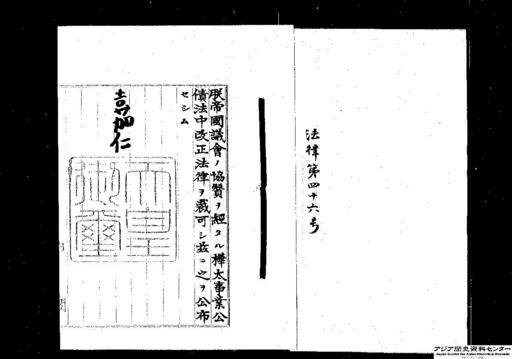 法律第四十六号
朕帝國議會ノ協贊ヲ經タル樺太事業公
債法中改正法律ヲ裁可シ茲ニ之ヲ公布
セシム
嘉仁
天皇
御璽
アジア歴史資料センター
Japan Center for Asian Historical Records